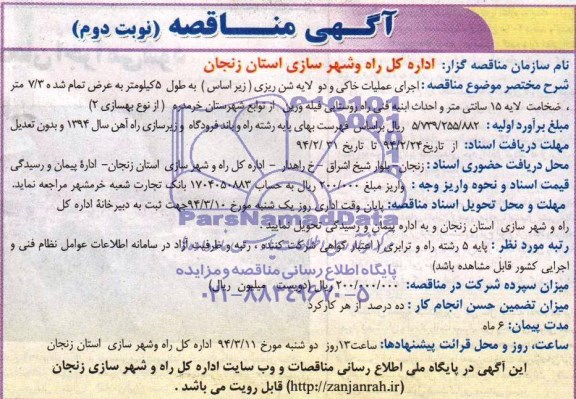 آگهی مناقصه (نوبت دوم)
نام سازمان مناقصه گزار: اداره کل راه وشهر سازی استان زنجان
شرح مختصر موضوع مناقصه: اجرای عملیات خاکی و دو لایه شن ریزی (زیر اساس) به طول ۵کیلومتر به عرض تمام شده ۷/۳ متر
، ضخامت لایه ۱۵ سانتی متر و احداث ابنیه فنی راه روستایی قبله وزین از توابع شهرستان خرمدره (از نوع بهسازی ۲)
مبلغ برآورد اولیه: ۵/۷۳۹/۲۵۵/۸۸۲ ریال براساس فهرست بهای پایه رشته راه وباند فرودگاه و زیرسازی راه آهن سال ۱۳۹۴ و بدون تعدیل
مهلت دریافت اسناد: از تاریخ۹۴/۲/۲۴ تا تاریخ ۹۴/۲/۳۱
محل دریافت حضوری اسناد: زنجان-بلوار شیخ اشراق -خ راهدار - اداره کل راه و شهر سازی استان زنجان- ادارهٔ پیمان و رسیدگی
قیمت اسناد و نحوه واریز وجه : واریز مبلغ ۲۰۰/۰۰۰ ریال به حساب ۱۷۰۴۰۵۰۸۸۳ بانک تجارت شعبه خرمشهر مراجعه نماید.
مهلت و محل تحویل اسناد مناقصه: پایان وقت اداری روز یک شنبه مورخ ۹۴/۳/۱۰جهت ثبت به دبیرخانهٔ اداره کل
راه و شهر سازی استان زنجان و به اداره پیمان و رسیدگی تحویل نمایید .
رتبه مورد نظر : پایه ۵ رشته راه و ترابری ( اعتبار گواهی شرکت کننده ، رتبه و ظرفیت آزاد در سامانه اطلاعات عوامل نظام فنی و
اجرایی کشور قابل مشاهده باشد)
میزان سپرده شرکت در مناقصه: ۲۰۰/۰۰۰/۰۰۰ ریال(دویست میلیون ریال)
میزان تضمین حسن انجام کار : ده درصد از هر کارکرد
مدت پیمان: ۶ ماه
ساعت، روز و محل قرائت پیشنهادها: ساعت۱۳روز دو شنبه مورخ ۹۴/۳/۱۱ اداره کل راه وشهر سازی استان زنجان
این آگهی در پایگاه ملی اطلاع رسانی مناقصات و وب سایت اداره کل راه و شهر سازی زنجان
(http://zanjanrah.ir) قابل رویت می باشد .
ParsNamadData
پایگاه اطلاع رسانی مناقصه و مزایده
۰۲۱-۸۸۳۴۹۶۷۰-۵